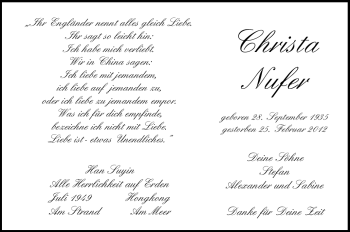 „Ihr Engländer nennt alles gleich Liebe.
Ihr sagt so leicht hin:
Ich habe mich verliebt.
Wir in China sagen:
Ich liebe mit jemandem,
ich liebe auf jemanden zu,
oder ich liebe zu jemandem empor.
Was ich für dich empfinde,
bezeichne ich nicht mit Liebe,
Liebe ist - etwas Unendliches.“
Han Suyin
Alle Herrlichkeit auf Erden
Juli 1949 Hongkong
Am Strand Am Meer
Christa
Nufer
geboren 28. September 1935
gestorben 25. Februar 2012
Deine Söhne
Stefan
Alexander und Sabine
Danke für Deine Zeit